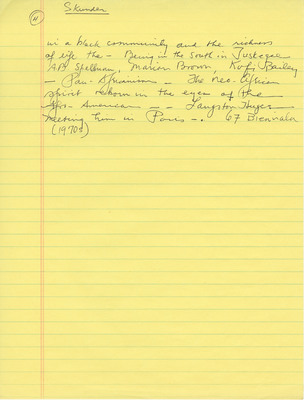 11
Skunder
in a black community and the richness
of life the - Being in the South in Tuskegee
AB Spellman, Marion Brown, Kofi Bailey
- Pan-Africanism - The Neo-African
spirit reborn in the eyes of the
Afro-American - - Langston Huges
meeting him in Paris -. 67 Biennale
(1970s)